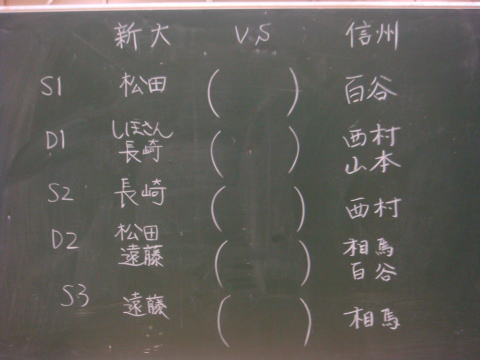 新大 VS 信州
S1 松田 ( ) 百谷
D1 しほさん 長崎 ( ) 西村 山本
S2 長崎 ( ) 西村
D2 松田 遠藤 ( ) 相馬 百谷
S3 遠藤 ( ) 相馬